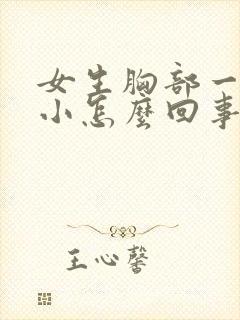 女生胸部一
小怎麼回事
王心馨